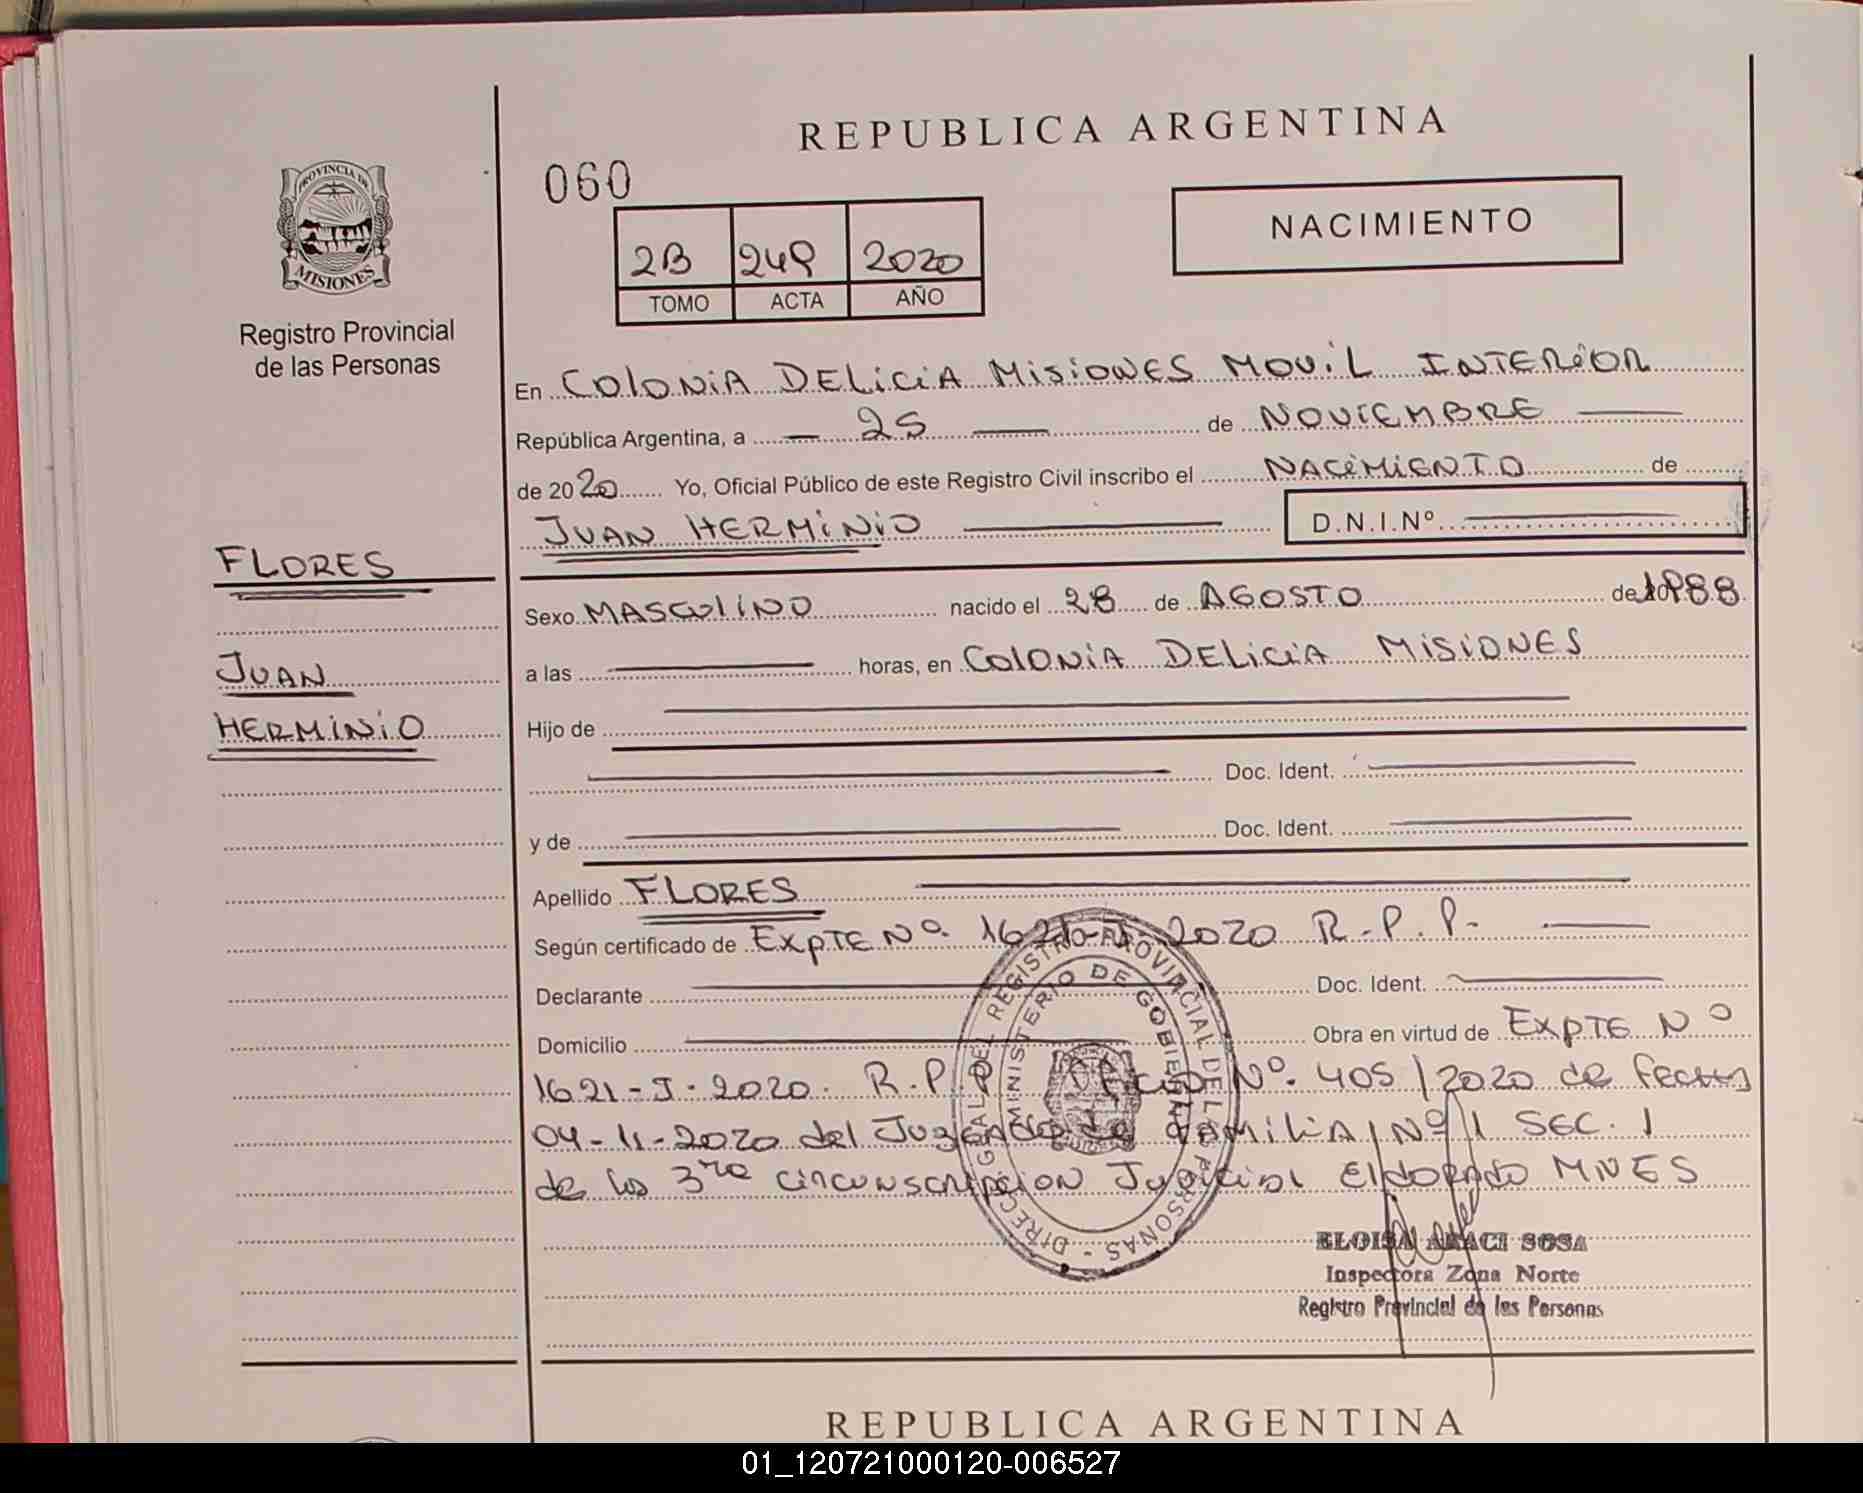 REPUBLICA ARGENTINA
060
NACIMIENTO
2B 249 2020
TOMO ACTA AÑO
PROVINCIA DE
MISIONES
Registro Provincial
de las Personas
En COLONIA DELICIA MISIONES MOVIL INTERIOR
República Argentina, a 25 de NOVIEMBRE
de 2020 Yo, Oficial Público de este Registro Civil inscribo el NACIMIENTO de
JUAN HERMINIO D.N.I.Nº
FLORES
JUAN
HERMINIO
Sexo MASCULINO nacido el 28 de AGOSTO de 1988
a las horas, en COLONIA DELICIA MISIONES
Hijo de
Doc. Ident.
y de Doc. Ident.
Apellido FLORES
Según certificado de EXPTE Nº. 1621-J-2020 R.P.P.
Declarante Doc. Ident.
Domicilio Obra en virtud de EXPTE Nº
1621-J-2020. R.P.P. Nº. 405/2020 de fecha
04-11-2020 del Juzgado de FAMILIA Nº 1 SEC. 1
de la 3ra circunscripcion Judicial Eldorado MNES
DIRECC. GRAL. DEL REGISTRO PROVINCIAL DE LAS PERSONAS -
MINISTERIO DE GOBIERNO
ELOISA ARACI SOSA
Inspectora Zona Norte
Registro Provincial de las Personas
REPUBLICA ARGENTINA
01_120721000120-006527